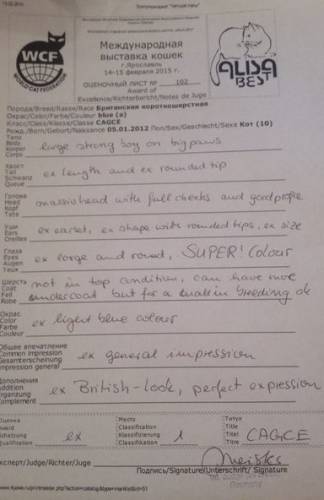 WCF
WORLD CAT FEDERATION
Международная
выставка кошек
г.Ярославль
14-15 февраля 2015 г.
ALISA
BEST
ОЦЕНОЧНЫЙ ЛИСТ № 102
Award of
Excellence/Richterbericht/Notes de Juge
Порода/Breed/Rasse/Race Британская короткошерстная
Окрас/Color/Farbe/Couleur blue (a)
Класс/Class/Klasse/Classe CAGCE
Рожд./Born/Geburt/Naissance 05.01.2012 Пол/Sex/Geschlecht/Sexe Кот (10)
Тело
Body
Körper
Corps
large strong boy on big paws
Хвост
Tail
Schwanz
Queue
ex length and ex rounded tip
Голова
Head
Kopf
Tete
massiv head with full cheeks and good profile
Уши
Ears
Ohren
Oreilles
ex earset, ex shape with rounded tips, ex size
Глаза
Eyes
Augen
Yeux
ex large and round, SUPER! Colour
Шерсть
Coat
Fell
Robe
not in top condition, can have more
undercoat but for a male in breeding ok
Окрас
Color
Farbe
Couleur
ex light blue colour
Общее впечатление
Common impression
Gesamterscheinung
Impression general
ex general impression
Дополнения
Addition
Ergänzung
Complement
ex British-look, perfect expression
Оценка
ex
Место
Classification
Klassifizierung
Classification
1
Титул
Title
Titel
Titre
CAGCE
Эксперт/Judge/Richter/Juge
Подпись/Signature/Unterschrift/ Signature